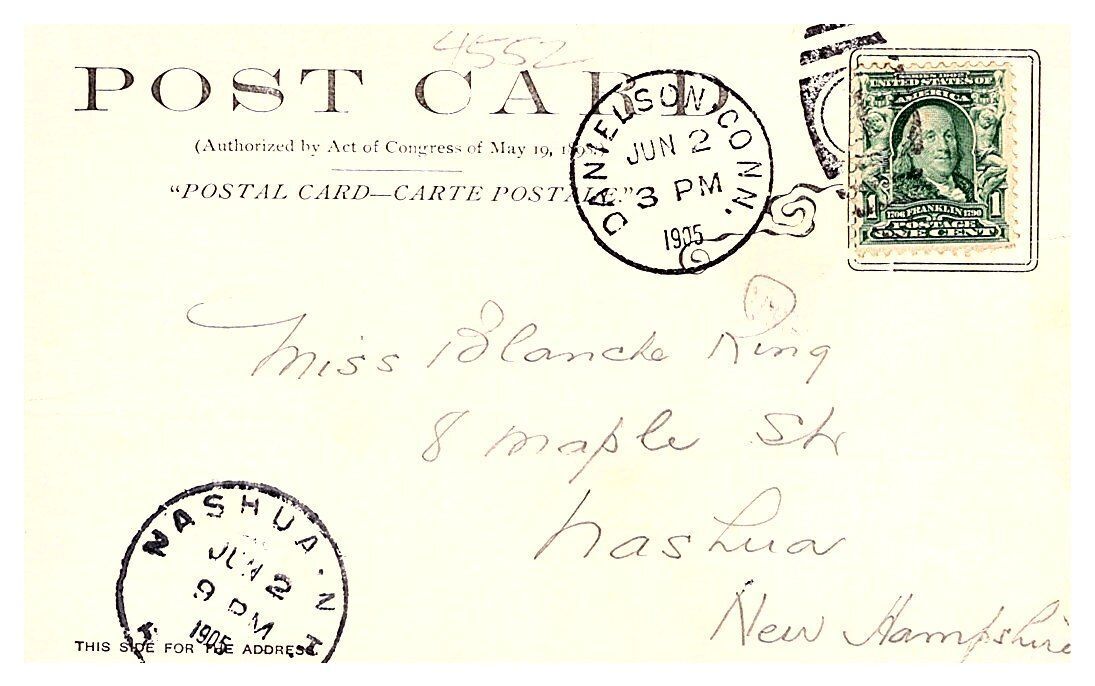 4552
POST CARD
(Authorized by Act of Congress of May 19, 1898)
"POSTAL CARD—CARTE POSTALE"
DANIELSON, CONN.
JUN 2
3 PM
1905
SERIES 1902
UNITED STATES OF
AMERICA
1 1706 FRANKLIN 1790 1
POSTAGE
ONE CENT
Miss Blanche King
8 Maple St
Nashua
New Hampshire
NASHUA. N.H.
JUN 2
9 PM
1905
THIS SIDE FOR THE ADDRESS.